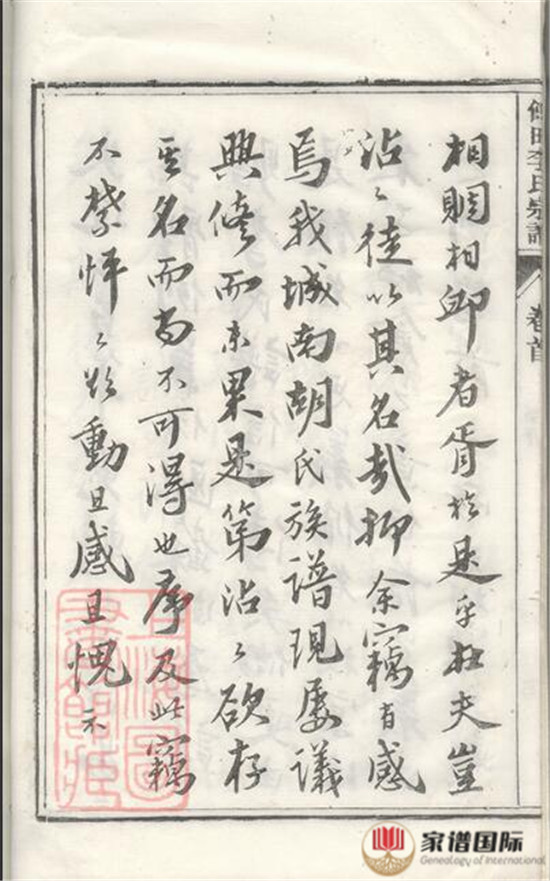 李氏宗譜 卷首
相賙相卹者胥於是乎在夫豈
沾〻徒以其名哉抑余竊有感
焉我城南胡氏族譜現屢議
興修而未果是第沾〻欲存
其名而尚不可得也序及此竊
不禁怦〻欲動且感且愧云
上海圖
書館藏
家谱国际
Genealogy of International